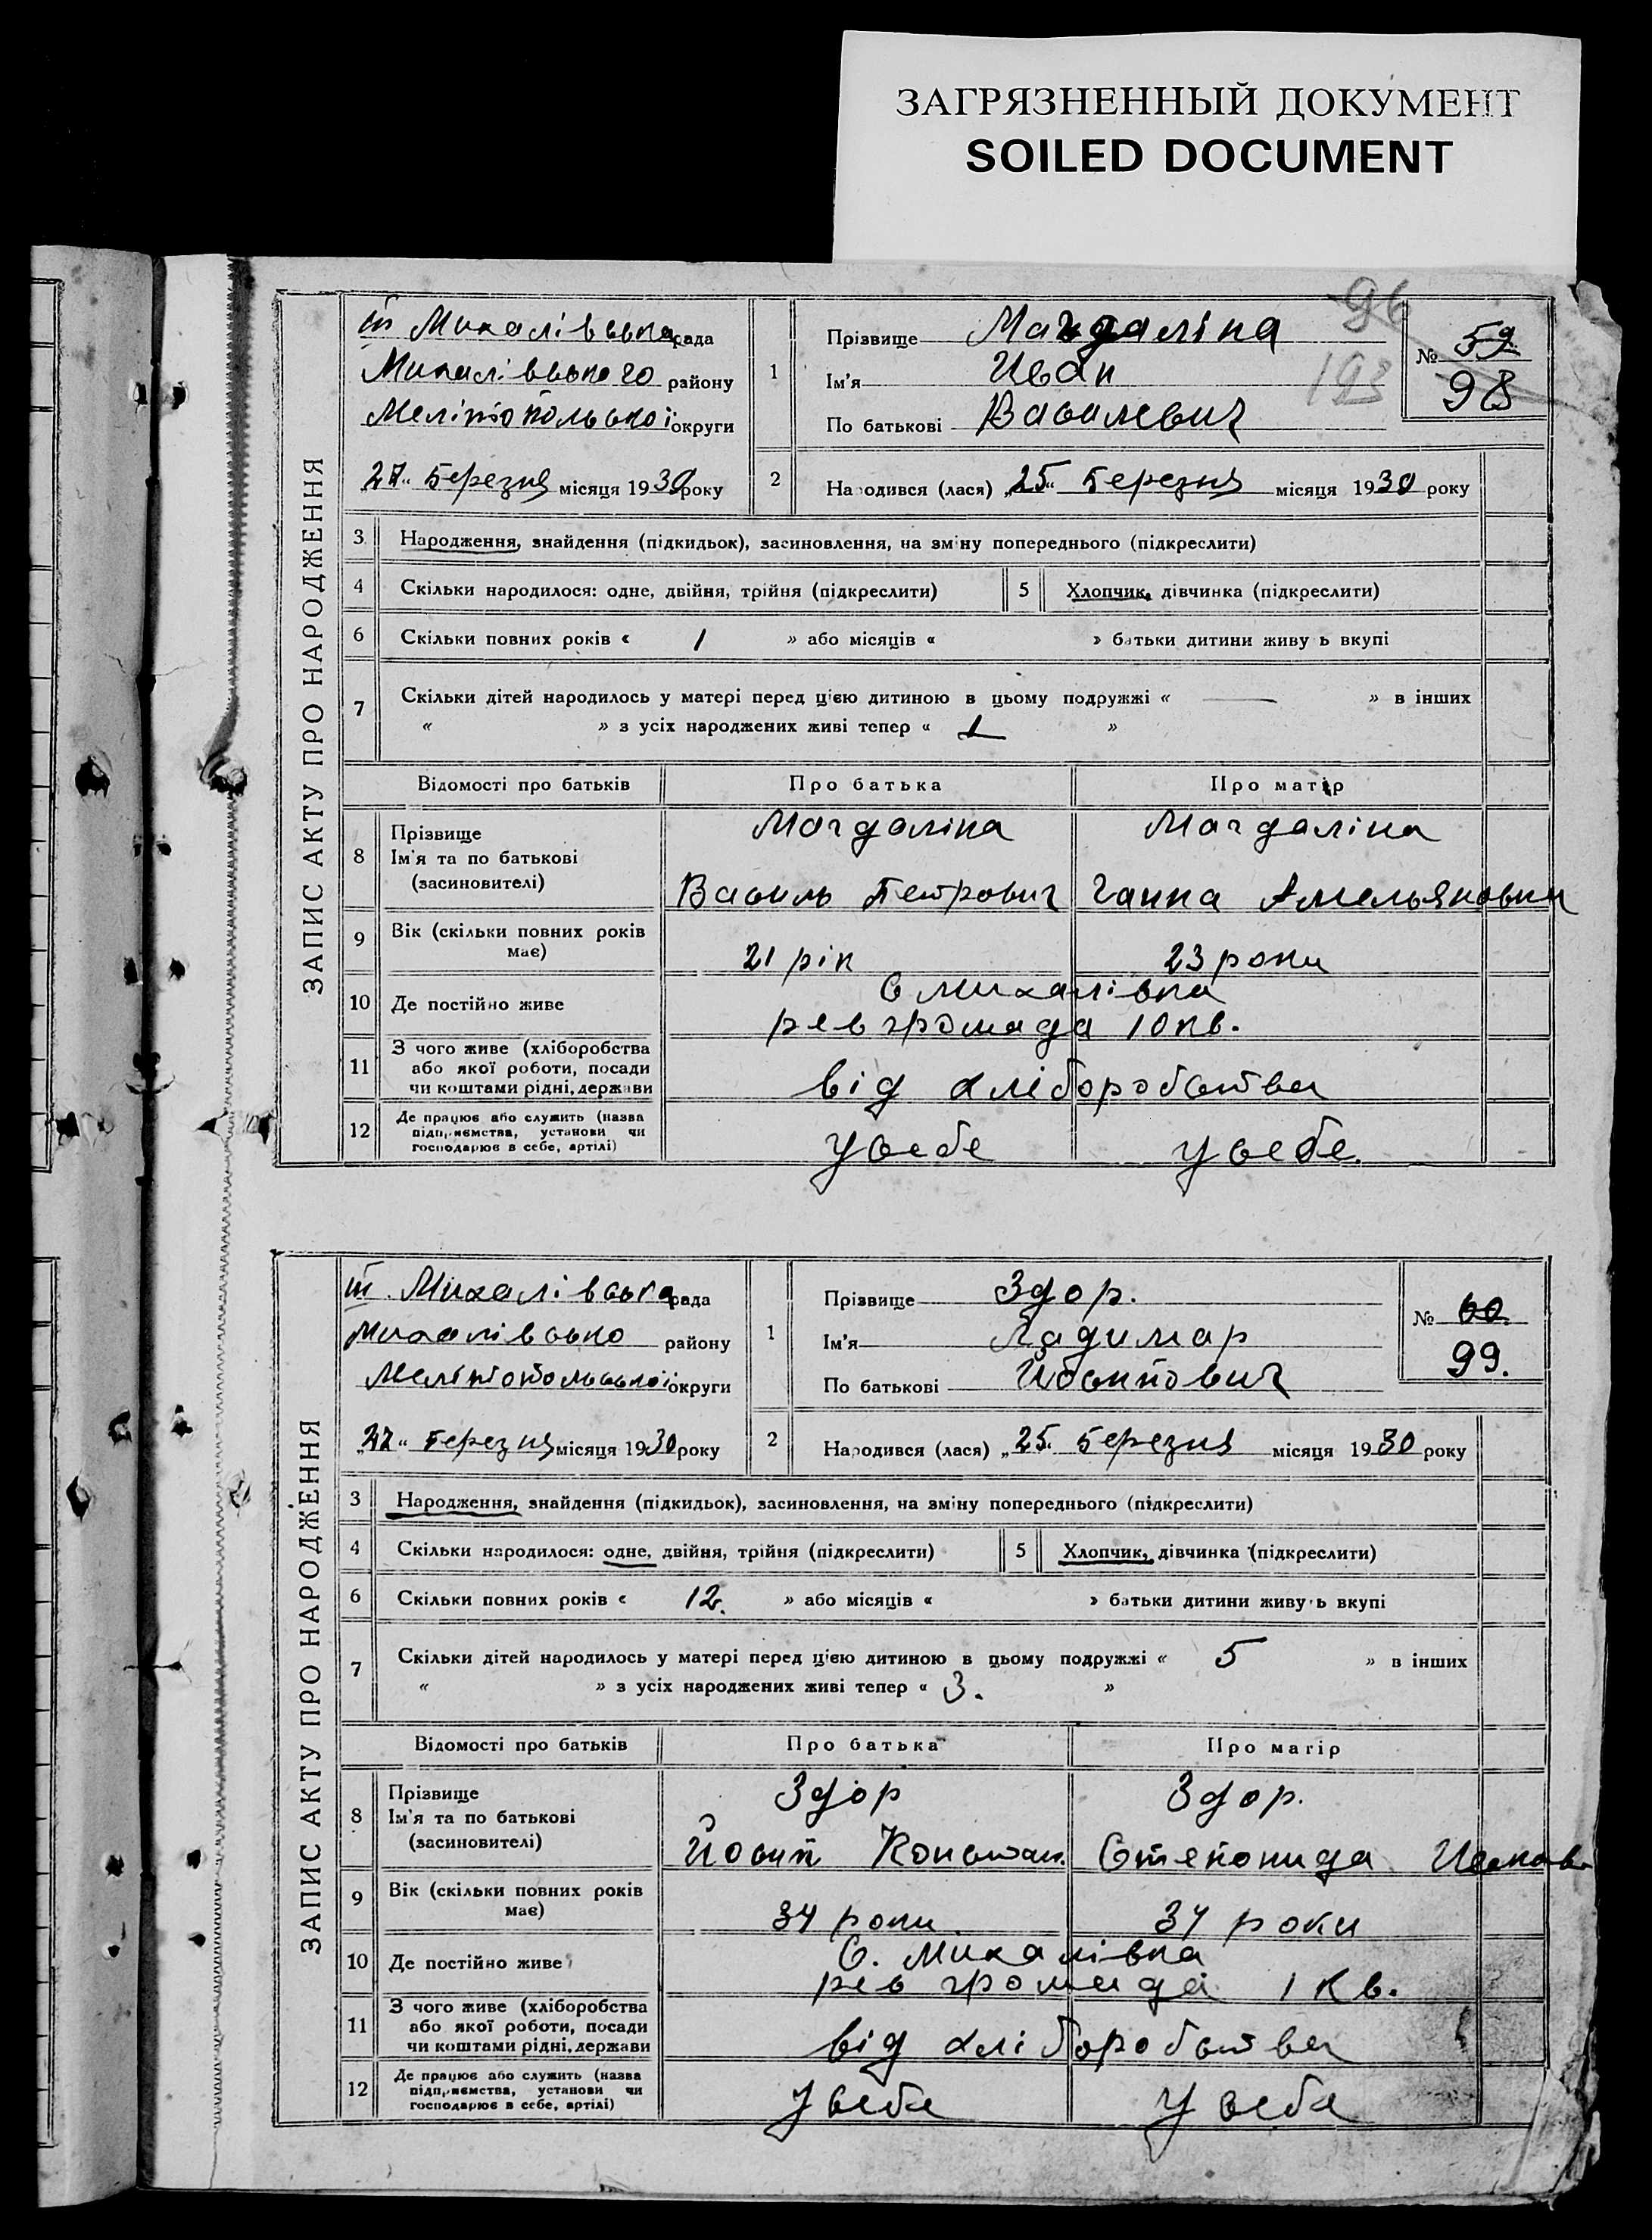 ЗАГРЯЗНЕННЫЙ ДОКУМЕНТ
SOILED DOCUMENT
96
193
ЗАПИС АКТУ ПРО НАРОДЖЕННЯ
ІІІ Михалівська рада
Михалівського району
Мелітопольської округи
„27“ березня місяця 1930 року
1
Прізвище Магдаліна
Ім'я Иван
По батькові Васильевич
№ 59
98
2
Народився (лася) „25“ березня місяця 1930 року
3 Народження, знайдення (підкидьок), засиновлення, на зміну попереднього (підкреслити)
4 Скільки народилося: одне, двійня, трійня (підкреслити) 5 Хлопчик, дівчинка (підкреслити)
6 Скільки повних років « 1 » або місяців « » батьки дитини живуть вкупі
7 Скільки дітей народилось у матері перед цією дитиною в цьому подружжі « — » в інших
« » з усіх народжених живі тепер « 1 »
Відомості про батьків Про батька Про матір
8 Прізвище Магдаліна Магдаліна
Ім'я та по батькові
(засиновителі) Василь Петрович Ганна Амельяновни
9 Вік (скільки повних років має) 21 рік 23 роки
10 Де постійно живе С Михалівка
рев громада 10 кв.
11 З чого живе (хліборобства
або якої роботи, посади
чи коштами рідні, держави від хліборобства
12 Де працює або служить (назва
підприємства, установи чи
господарює в себе, артілі) у себе у себе.
ЗАПИС АКТУ ПРО НАРОДЖЕННЯ
ІІІ Михалівська рада
Михалівсько району
Мелітопольської округи
„27“ березня місяця 1930 року
1
Прізвище Здор.
Ім'я Ладимар
По батькові Йосипович
№ 60
99.
2
Народився (лася) „25. березня місяця 1930 року
3 Народження, знайдення (підкидьок), засиновлення, на зміну попереднього (підкреслити)
4 Скільки народилося: одне, двійня, трійня (підкреслити) 5 Хлопчик, дівчинка (підкреслити)
6 Скільки повних років « 12. » або місяців « » батьки дитини живуть вкупі
7 Скільки дітей народилось у матері перед цією дитиною в цьому подружжі « 5 » в інших
« » з усіх народжених живі тепер « 3. »
Відомості про батьків Про батька Про матір
8 Прізвище Здор Здор.
Ім'я та по батькові
(засиновителі) Йосип Констан. Степонида
9 Вік (скільки повних років має) 34 роки 34 роки
10 Де постійно живе С. Михалівка
рев громада 1 Кв.
11 З чого живе (хліборобства
або якої роботи, посади
чи коштами рідні, держави від хліборобства
12 Де працює або служить (назва
підприємства, установи чи
господарює в себе, артілі) у себе у себе